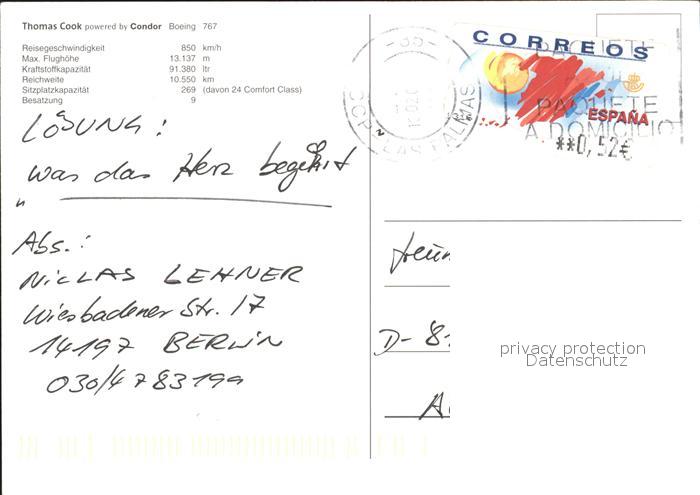 Thomas Cook powered by Condor Boeing 767
Reisegeschwindigkeit 850 km/h
Max. Flughöhe 13.137 m
Kraftstoffkapazität 91.380 ltr
Reichweite 10.550 km
Sitzplatzkapazität 269 (davon 24 Comfort Class)
Besatzung 9
LÖSUNG:
was das Herz begehrt
Abs.:
NiCLAS LEHNER
Wiesbadener Str. 17
14197 BERLiN
030/4783199
CORREOS
ESPAÑA
PAQUETE
A DOMICILIO
**0,52€
-35-
LAS PALMAS
D- 8
A
privacy protection
Datenschutz